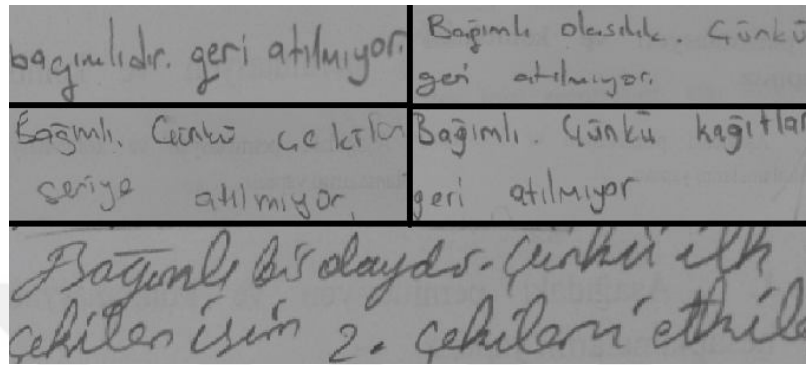 bağımlıdır. geri atılmıyor.
Bağımlı olasılık. Çünkü
geri atılmıyor.
Bağımlı. Çünkü çekilen
seriye atılmıyor.
Bağımlı. Çünkü kağıtlar
geri atılmıyor
Bağımlı bir olaydır. Çünkü ilk
çekilen isim 2. çekileni etkile